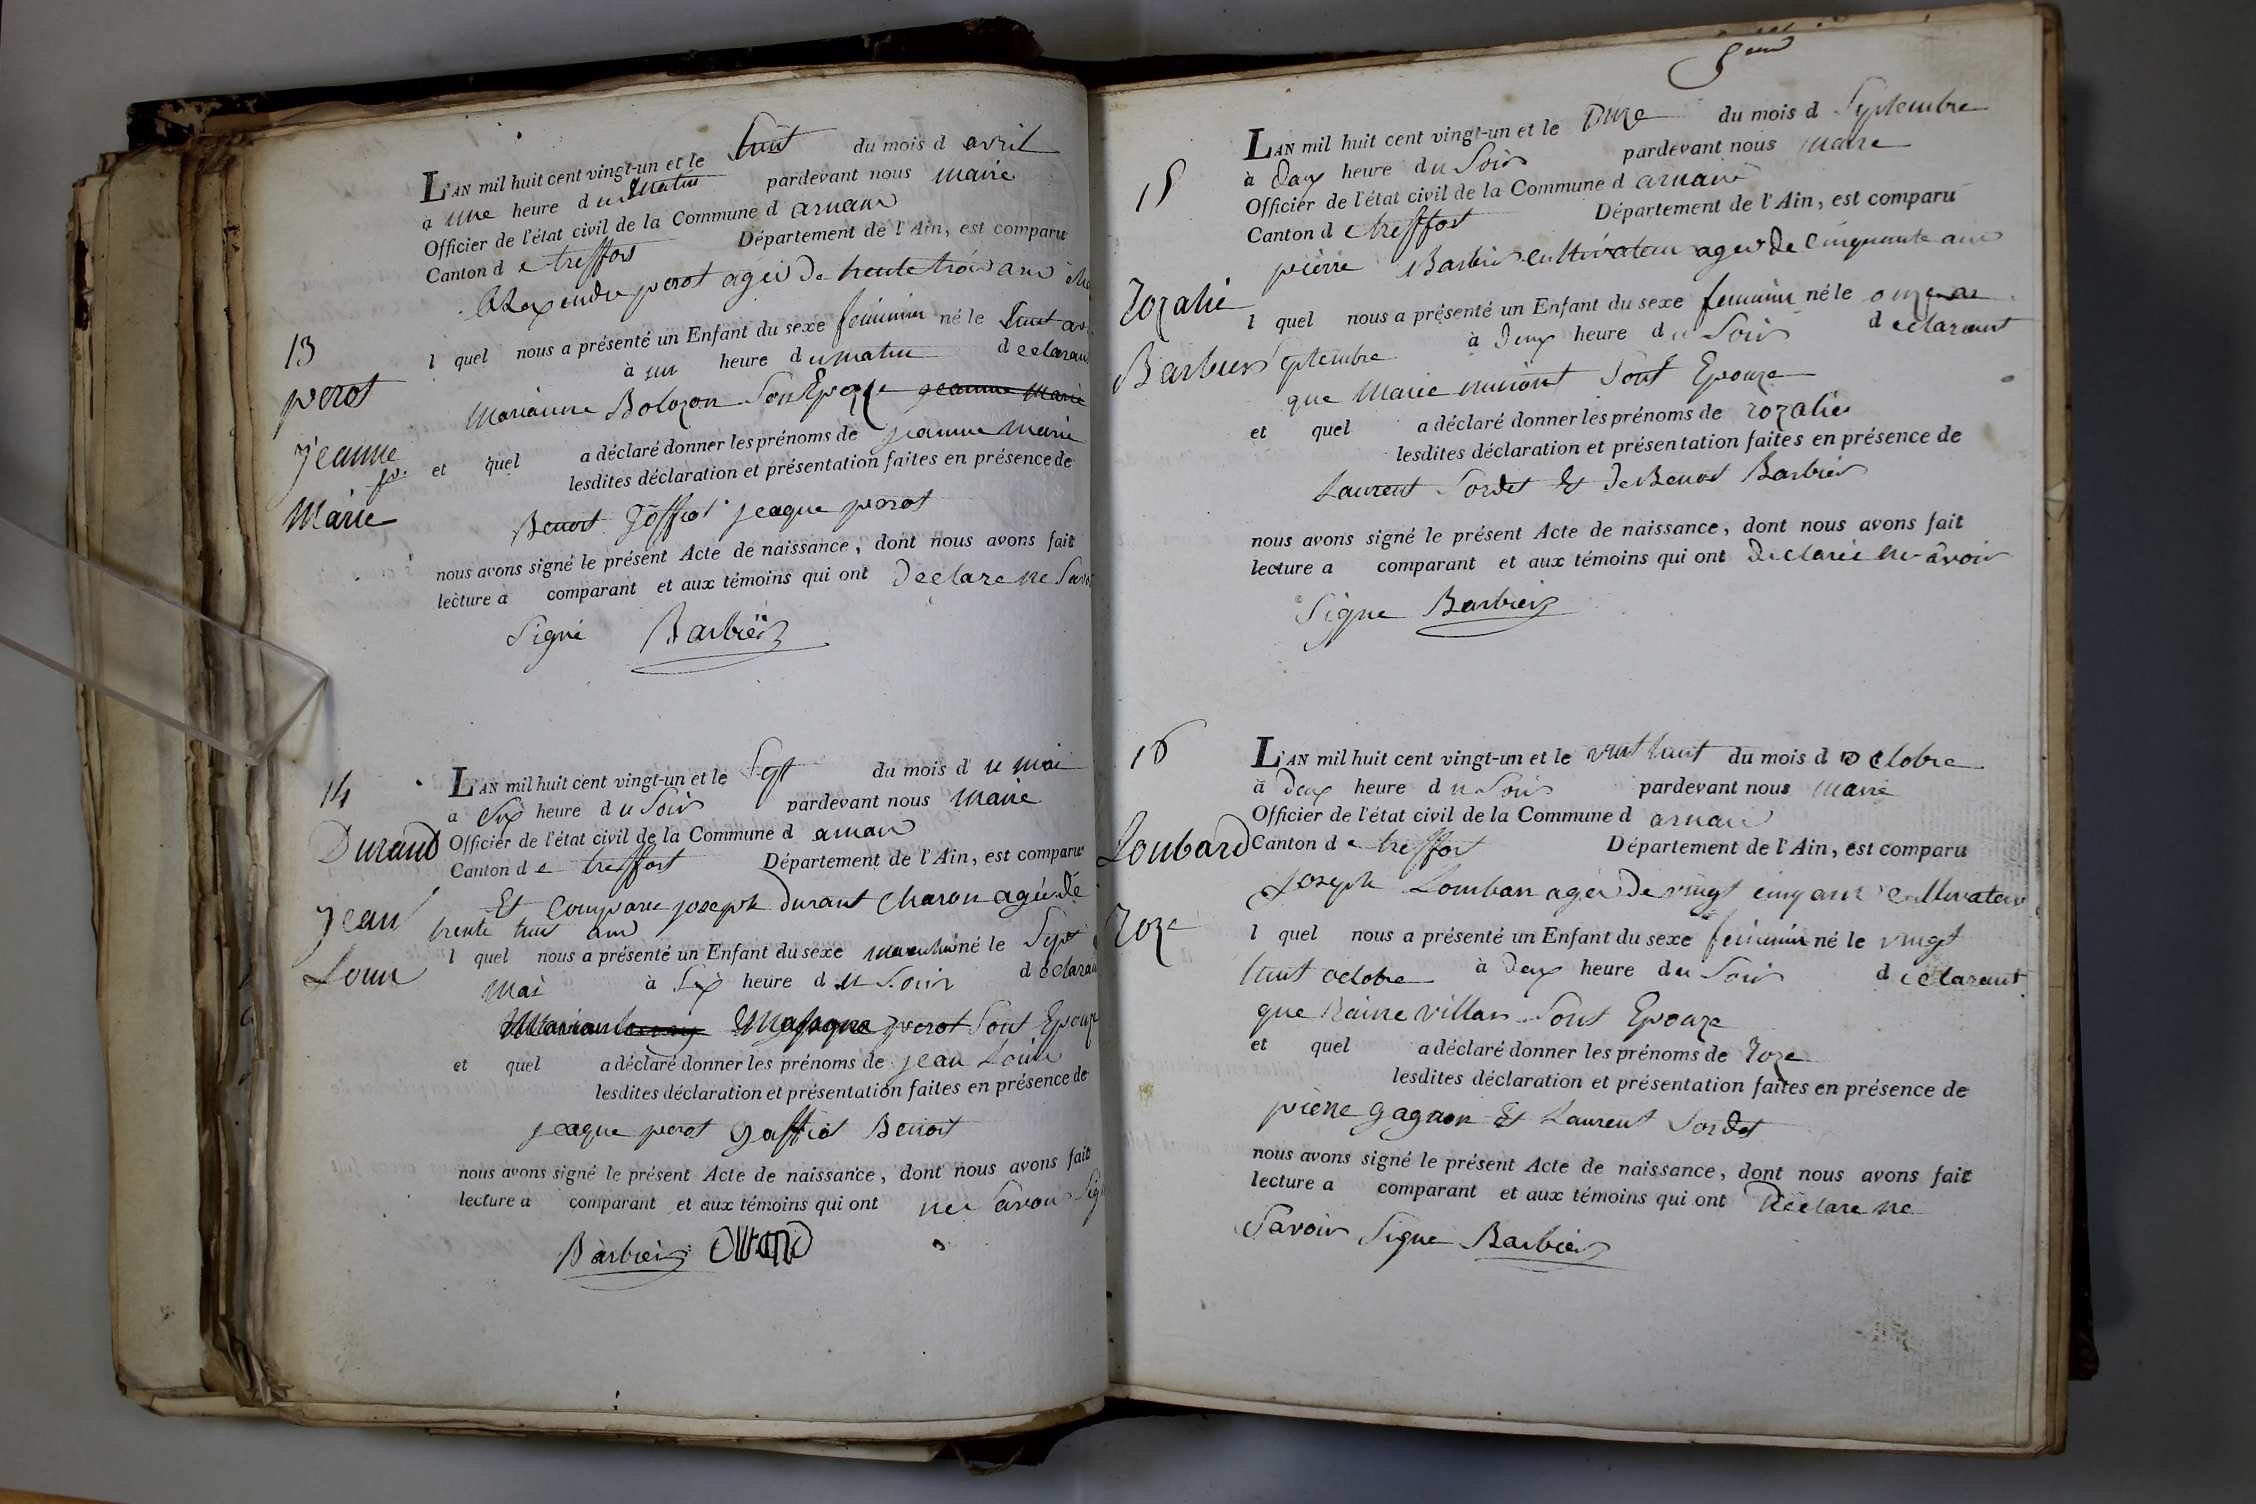 13
perot
jeanne
Marie
L'AN mil huit cent vingt-un et le huit du mois d avril
à une heure du matin pardevant nous maire
Officier de l'état civil de la Commune d arnan
Canton d e treffort Département de l'Ain, est comparu
perot agée de trente trois ans
l quel nous a présenté un Enfant du sexe feminin né le huit
à un heure du matin declarant
Marianne Bolozon Son Epoze jeanne Marie
et quel a déclaré donner les prénoms de jeanne marie
lesdites déclaration et présentation faites en présence de
Benoit Goffiot jeaque perot
nous avons signé le présent Acte de naissance, dont nous avons fait
lecture a comparant et aux témoins qui ont declare ne
Signé Barbier
14
Durand
Jean
Louis
L'AN mil huit cent vingt-un et le Sept du mois d u mai
à Six heure du Soir pardevant nous maire
Officier de l'état civil de la Commune d arnan
Canton d e treffort Département de l'Ain, est comparu
Et Comparu joseph durant Charon agée de
trente huit ans
l quel nous a présenté un Enfant du sexe masculin né le Sept
mai à Six heure du Soir declarant
perot Sont Epouze
et quel a déclaré donner les prénoms de jean Louis
lesdites déclaration et présentation faites en présence de
jeaque perot goffiot Benoit
nous avons signé le présent Acte de naissance, dont nous avons fait
lecture a comparant et aux témoins qui ont ne Savoir
Barbier durand
15
Rozalie
Barbier
L'AN mil huit cent vingt-un et le onze du mois d Septembre
à deux heure du Soir pardevant nous maire
Officier de l'état civil de la Commune d arnan
Canton d e treffort Département de l'Ain, est comparu
pierre Barbier cultivateur agée de cinquante ans
l quel nous a présenté un Enfant du sexe feminin né le onze
Septembre à deux heure du Soir declarant
que Marie Sont Epouze
et quel a déclaré donner les prénoms de rozalie
lesdites déclaration et présentation faites en présence de
Laurent Sordet Et de Benoit Barbier
nous avons signé le présent Acte de naissance, dont nous avons fait
lecture a comparant et aux témoins qui ont declarée ne Savoir
Signe Barbier
16
Loubard
Roze
L'AN mil huit cent vingt-un et le vint huit du mois d octobre
à deux heure du Soir pardevant nous maire
Officier de l'état civil de la Commune d arnan
Canton d e treffort Département de l'Ain, est comparu
joseph Lombar agée de vingt cinq ans cultivateur
l quel nous a présenté un Enfant du sexe feminin né le vingt
huit octobre à deux heure du Soir declarant
que Raine villar Sont Epouze
et quel a déclaré donner les prénoms de roze
lesdites déclaration et présentation faites en présence de
pierre gagnon Et Laurent Sordet
nous avons signé le présent Acte de naissance, dont nous avons fait
lecture a comparant et aux témoins qui ont declare ne
Savoir Signe Barbier